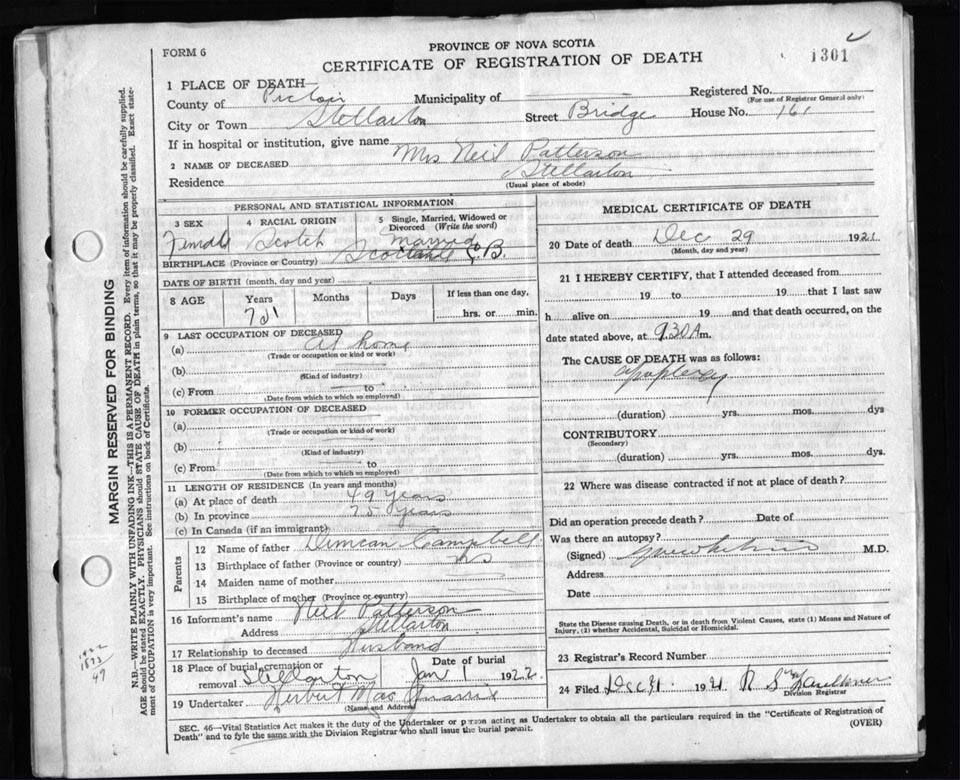 FORM 6
PROVINCE OF NOVA SCOTIA
CERTIFICATE OF REGISTRATION OF DEATH
1301
1 PLACE OF DEATH—
County of Pictou Municipality of
Registered No.
(For use of Registrar General only)
City or Town Stellarton Street Bridge House No. 161
If in hospital or institution, give name
2 NAME OF DECEASED Mrs Neil Patterson
Residence Stellarton
(Usual place of abode)
PERSONAL AND STATISTICAL INFORMATION
3 SEX Female
4 RACIAL ORIGIN Scotch
5 Single, Married, Widowed or Divorced (Write the word) Married
BIRTHPLACE (Province or Country) C.B.
DATE OF BIRTH (month, day and year)
8 AGE Years Months Days If less than one day,
hrs. or min.
9 LAST OCCUPATION OF DECEASED
(a) At home
(Trade or occupation or kind or work)
(b)
(Kind of industry)
(c) From to
(Date from which to which so employed)
10 FORMER OCCUPATION OF DECEASED
(a)
(Trade or occupation or kind of work)
(b)
(Kind of industry)
(c) From to
(Date from which to which so employed)
11 LENGTH OF RESIDENCE (In years and months)
(a) At place of death 49 years
(b) In province 75 years
(c) In Canada (if an immigrant)
Parents
12 Name of father Duncan Campbell
13 Birthplace of father (Province or country) NS
14 Maiden name of mother
15 Birthplace of mother (Province or country)
16 Informant's name Neil Patterson
Address Stellarton
17 Relationship to deceased Husband
18 Place of burial, cremation or removal Stellarton
Date of burial Jan 1 1922
19 Undertaker Herbert Mac
(Name and Address)
MEDICAL CERTIFICATE OF DEATH
20 Date of death Dec 29 1921
(Month, day and year)
21 I HEREBY CERTIFY, that I attended deceased from
19 to 19 that I last saw
h alive on 19 and that death occurred, on the
date stated above, at 9.30 A m.
The CAUSE OF DEATH was as follows:
apoplexy
(duration) yrs. mos. dys
CONTRIBUTORY
(Secondary)
(duration) yrs. mos. dys.
22 Where was disease contracted if not at place of death?
Did an operation precede death? Date of
Was there an autopsy?
(Signed) M.D.
Address
Date
State the Disease causing Death, or in death from Violent Causes, state (1) Means and Nature of
Injury, (2) whether Accidental, Suicidal or Homicidal.
23 Registrar's Record Number
24 Filed Dec 31 1921 R S Faulkner
Division Registrar
SEC. 46—Vital Statistics Act makes it the duty of the Undertaker or person acting as Undertaker to obtain all the particulars required in the "Certificate of Registration of
Death" and to fyle the same with the Division Registrar who shall issue the burial permit.
(OVER)
MARGIN RESERVED FOR BINDING
N.B.—WRITE PLAINLY WITH UNFADING INK—THIS IS A PERMANENT RECORD. Every item of information should be carefully supplied.
AGE should be stated EXACTLY. PHYSICIANS should STATE CAUSE OF DEATH in plain terms, so that it may be properly classified. Exact state-
ment of OCCUPATION is very important. See instructions on back of Certificate.
1922
1873
49